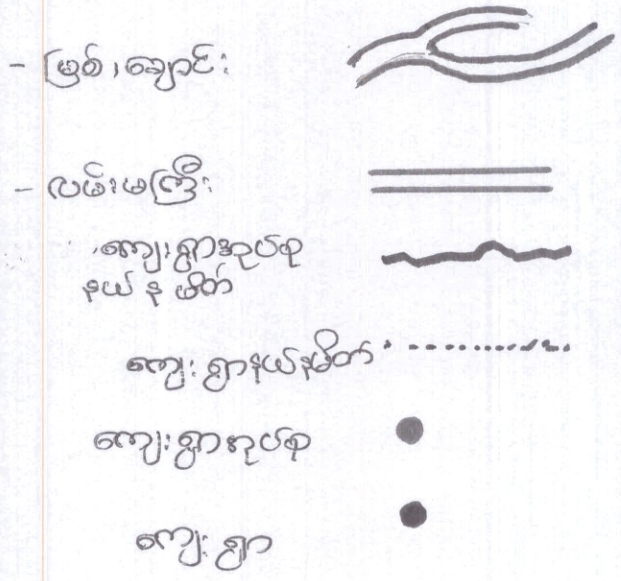 - မြစ်၊ ချောင်း
- လမ်းမကြီး
ကျေးရွာအုပ်စု
နယ် န မိတ်
ကျေးရွာနယ်နမိတ်
ကျေးရွာအုပ်စု
ကျေးရွာ